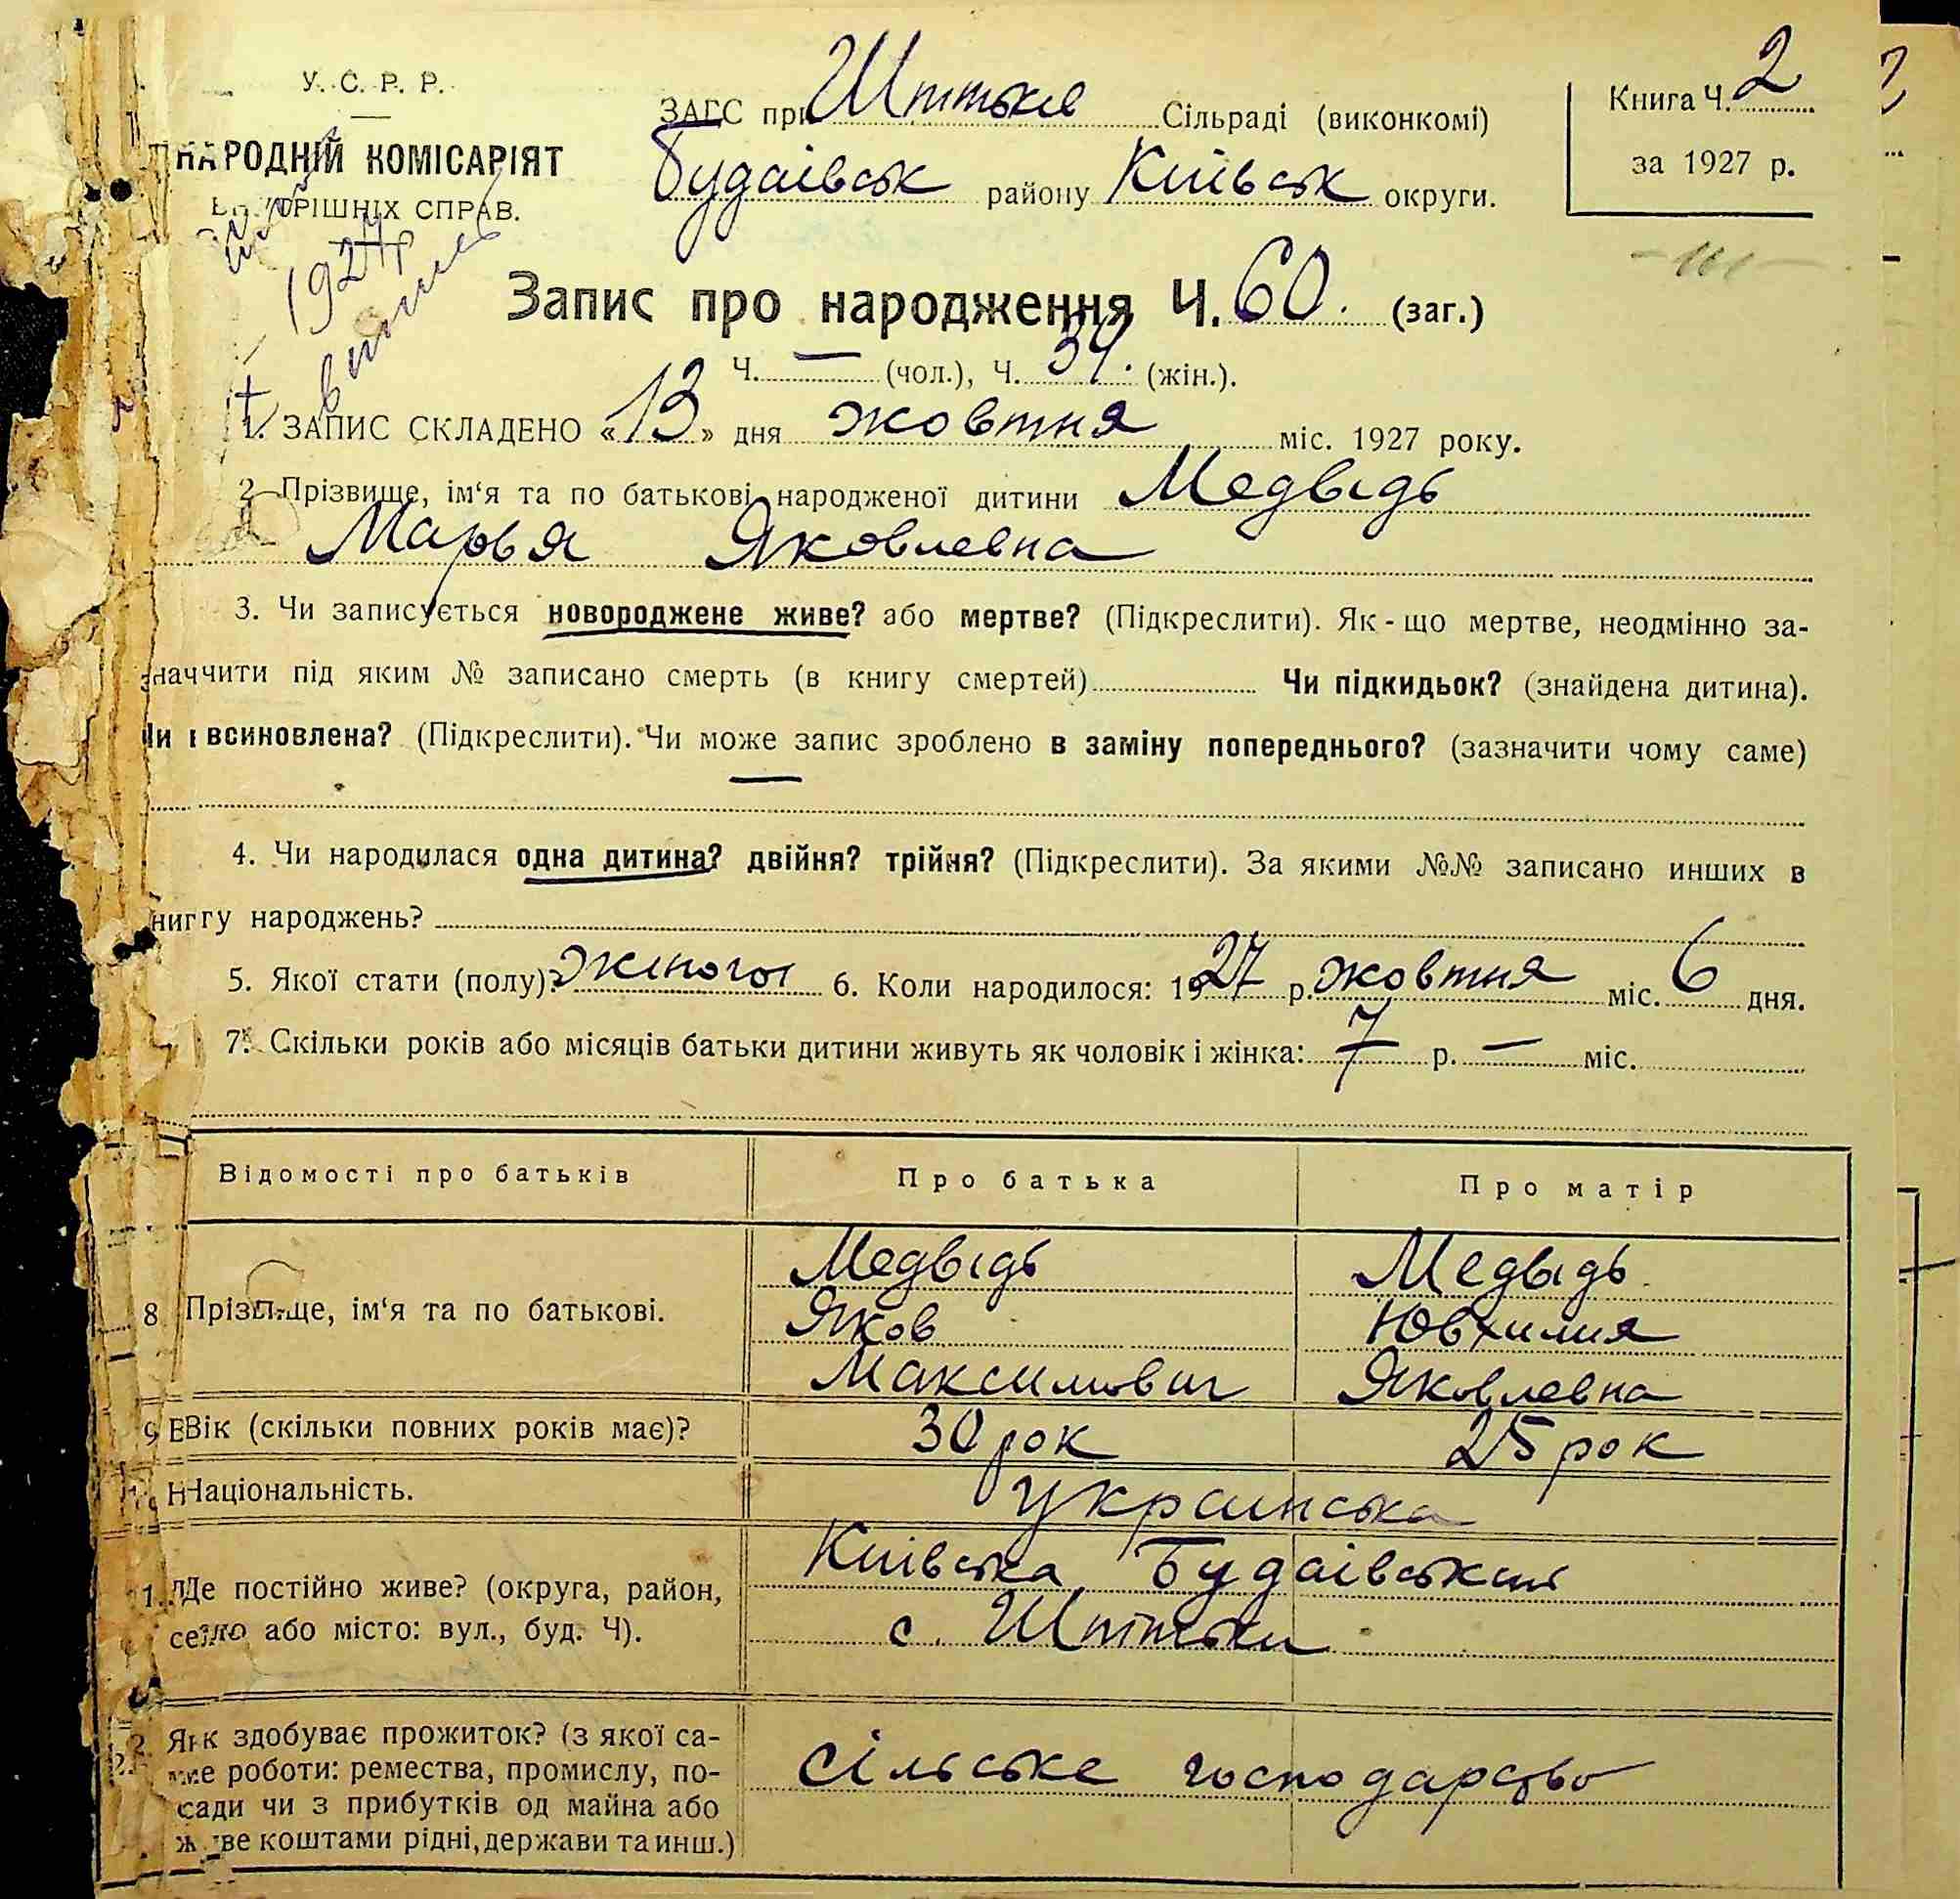 У. С. Р. Р.
НАРОДНІЙ КОМІСАРІЯТ
СПРАВ.
ЗАГС при Шпітьків Сільраді (виконкомі)
Будаівськ району Київськ округи.
Книга Ч. 2
за 1927 р.
Запис про народження Ч. 60. (заг.)
Ч. — (чол.), Ч. 34. (жін.).
1. ЗАПИС СКЛАДЕНО « 13 » дня жовтня міс. 1927 року.
2 Прізвище, ім‘я та по батькові народженої дитини Медвідь
Марья Яковлевна
3. Чи записується новороджене живе? або мертве? (Підкреслити). Як-що мертве, неодмінно за-
наччити під яким № записано смерть (в книгу смертей) Чи підкидьок? (знайдена дитина).
Чи всиновлена? (Підкреслити). Чи може запис зроблено в заміну попереднього? (зазначити чому саме)
—
4. Чи народилася одна дитина? двійня? трійня? (Підкреслити). За якими №№ записано инших в
книгу народжень?
5. Якої стати (полу)? жіного 6. Коли народилося: 1927 р. жовтня міс. 6 дня.
7. Скільки років або місяців батьки дитини живуть як чоловік і жінка: 7 р. — міс.
Відомості про батьків Про батька Про матір
8 Прізвище, ім‘я та по батькові.
Медвідь Медвідь
Яков Ювхимия
Максимович Яковлевна
9 Вік (скільки повних років має)? 30 рок 25 рок
Національність. Украинська
Де постійно живе? (округа, район,
село або місто: вул., буд. Ч).
Київська Будаівський
с. Шпітьки
Як здобуває прожиток? (з якої са-
ме роботи: ремества, промислу, по-
сади чи з прибутків од майна або
живе коштами рідні, держави та инш.)
сільське господарство